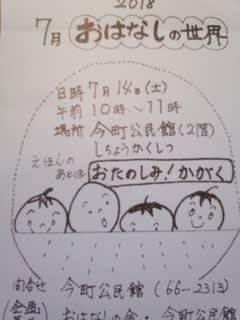 2018
7月 おはなしの世界
日時 7月14日(土)
午前10時〜11時
場所 今町公民館(2階)
しちょうかくしつ
えほんの
あとは おたのしみ!かがく
問合せ 今町公民館 (66-2313)
おはなしの会・今町公民館